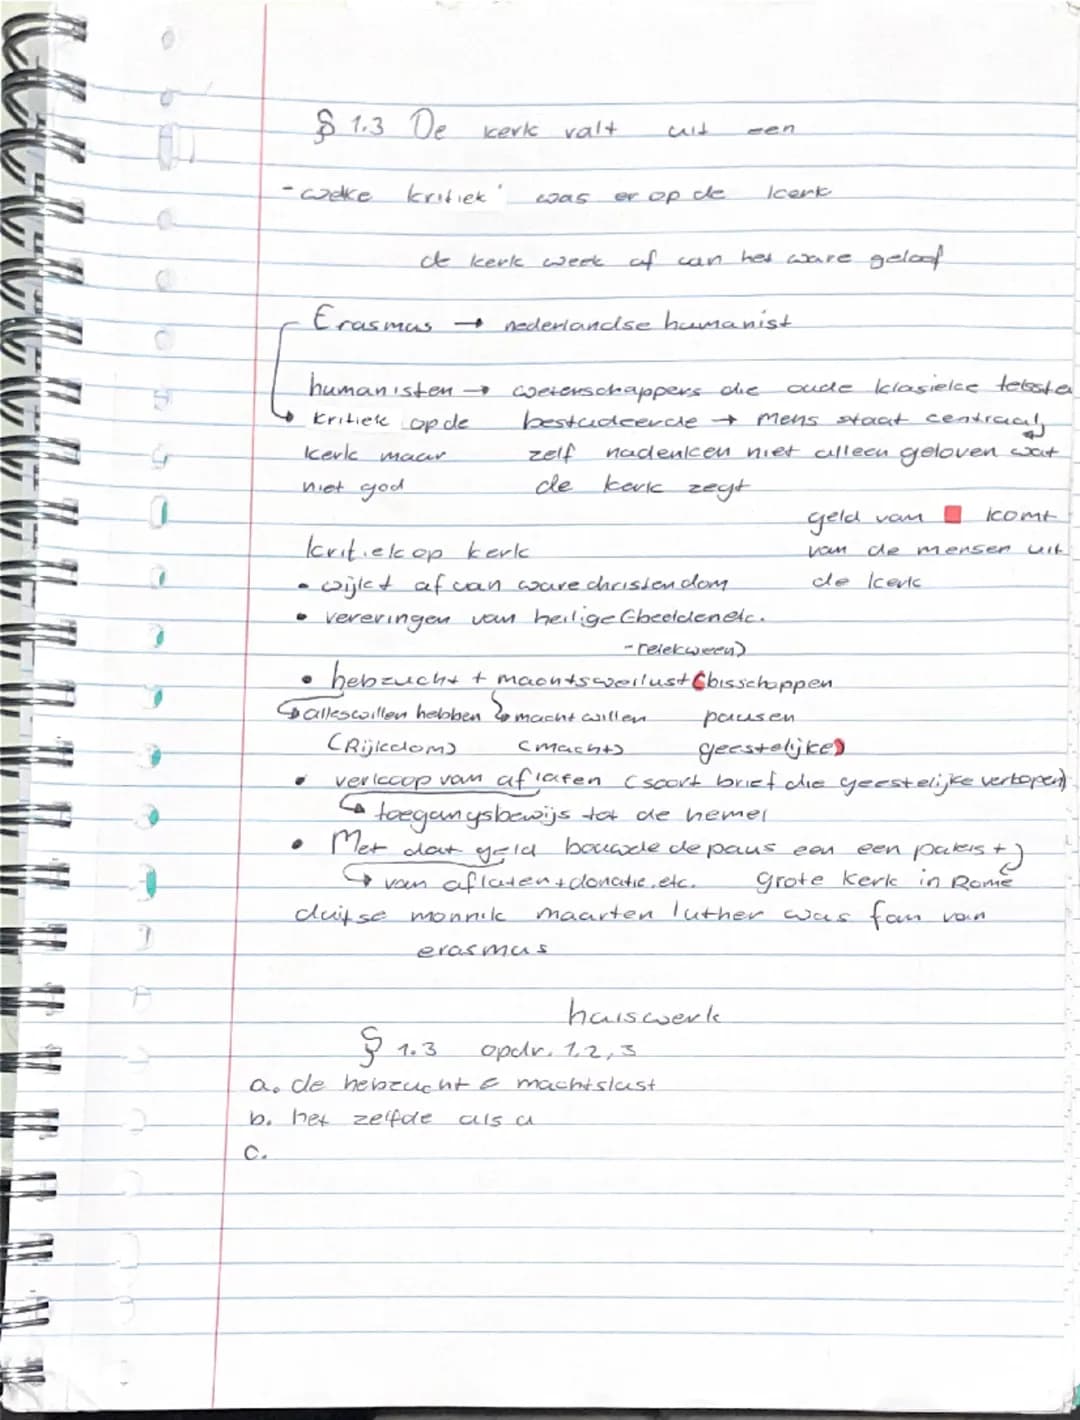 § 1.3 De kerk valt uit een
- welke kritiek was er op de kerk
de kerk week af van het ware geloof
Erasmus → nederlandse humanist
humanisten → wetenschappers die oude klasieke
↳ kritiek op de bestudeerde → mens staat centraal
kerk maar zelf nadenken niet alleen geloven wat
niet god de kerk zegt
geld van komt
van de mensen uit
de kerk
kritiek op kerk
• wijkt af van ware christendom
• vereringen van heilige (beelden etc.
- relekween)
• hebzucht + machtswellust (bisschoppen
↳ alles willen hebben ↳ macht willen pausen
(Rijkdom) (macht) geestelijke)
• verkoop van aflaten (soort brief die geestelijke verkopen)
↳ toegangsbewijs tot de hemel
• Met dat geld bouwde de paus een een paleis +
↳ van aflaten + donatie, etc. grote kerk in Rome
duitse monnik maarten luther was fan van
erasmus
huiswerk
§ 1.3 opdr. 1, 2, 3
a. de hebzucht & machtslust
b. het zelfde als a
c.